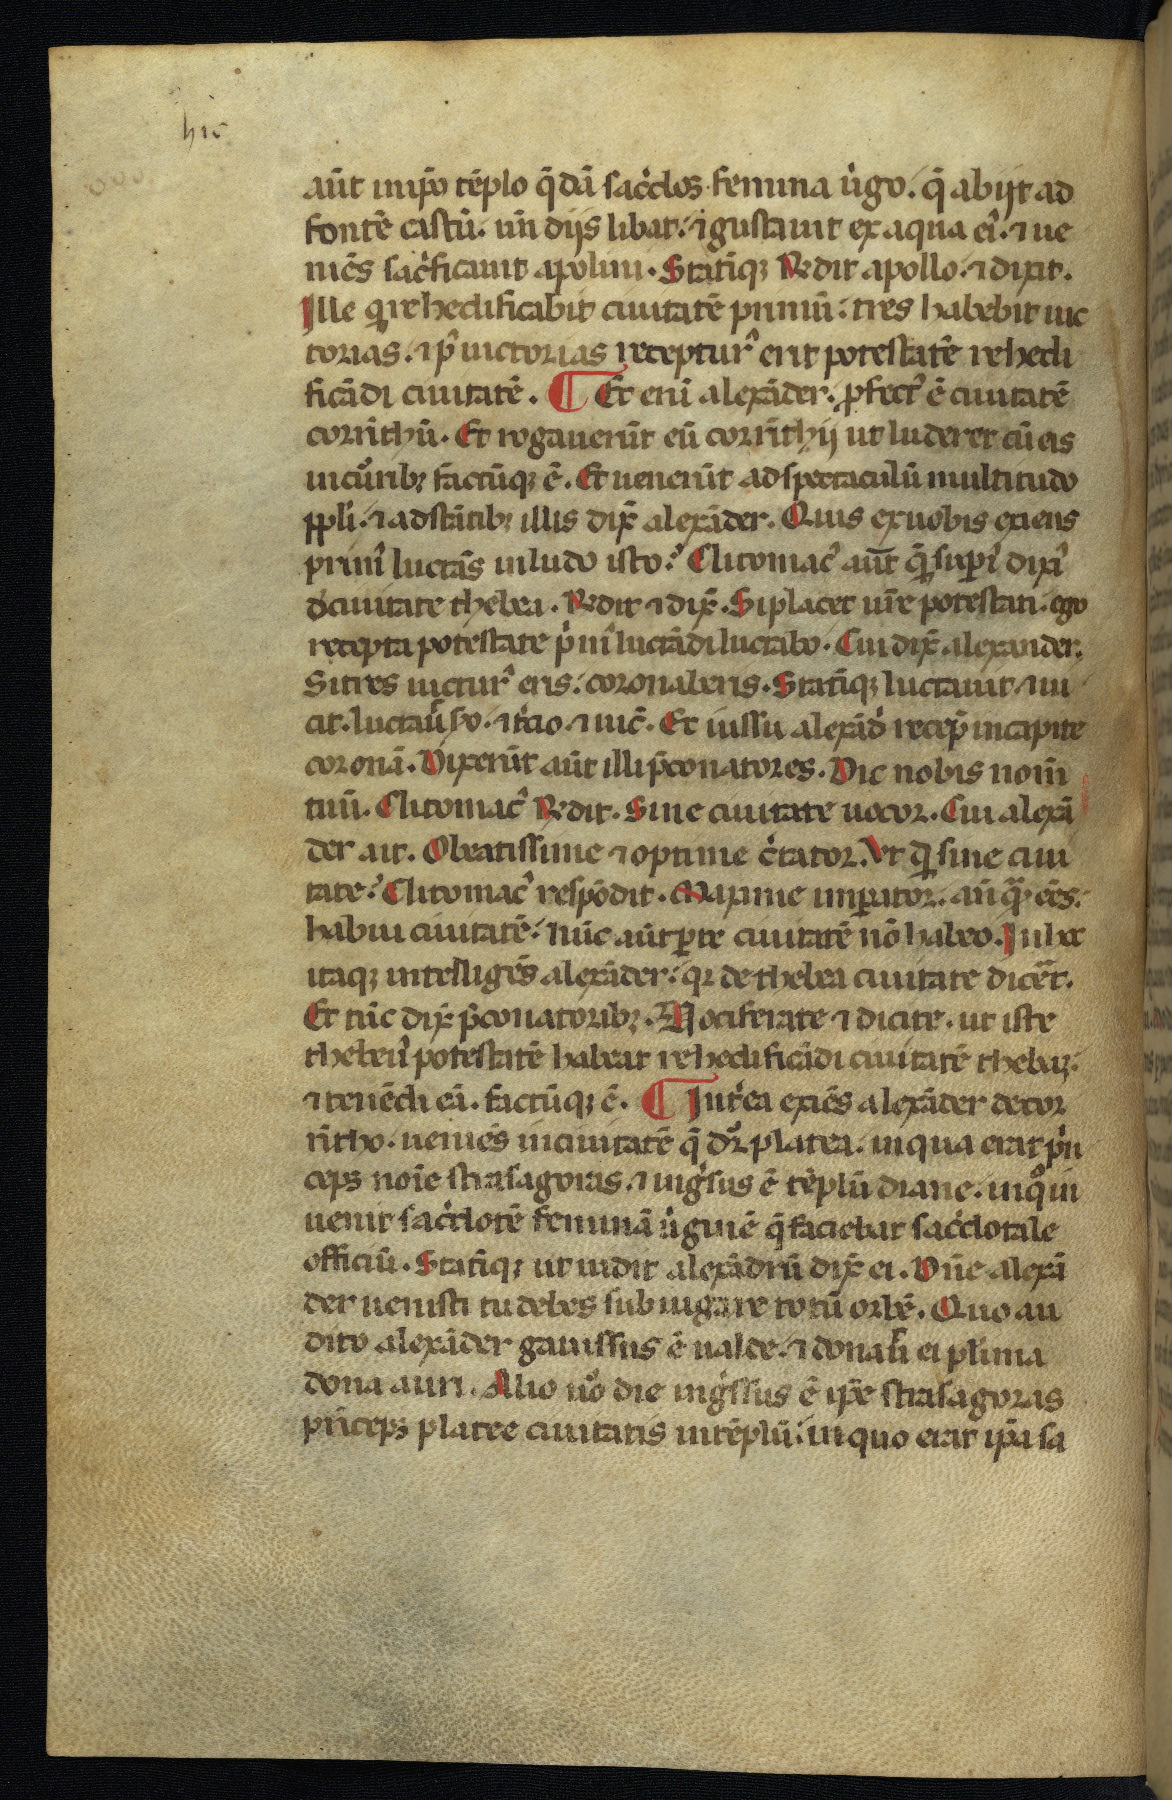 hic
aūt in ip̄o tēplo q̄dā sac̄dos femina ūgo. q̄ abiit ad
fontē castū. un̄ diis libat. ⁊ gustauit ex aqua ei᷒. ⁊ ue
niēs sac̄ficauit apolini. Statīq; R̄dit apollo. ⁊ dixit.
Ille qui rehedificabit ciuitatē primū. tres habebit uic
torias. ⁊ p᷒ uictorias receptur᷒ erit potestatē rehedi
ficādi ciuitatē. ¶ Et eni᷒ alexāder. ꝓfect᷒ ē ciuitatē
corrīthū. Et rogauerūt eū corrīthij ut luderet cū eis
in curib; factūq; ē. Et uenerūt ad spectaculū multitudo
ppli. ⁊ adstātib; illis dix̄ alexāder. Quis ex uobis exiens
prim᷒ luctās in ludo isto? Clitomac᷒ aūt quē supi᷒ dixi᷒
d ciuitate thebea. R̄dit ⁊ dix̄. Si placet ur̄e potestati. ego
recepta potestate p̄mi᷒ luctādi luctabo. Cui dix̄ alexander.
Si tres uictur᷒ eris. coronaberis. Statīq; luctauit ⁊ ui
cit. luctaū s̄o. ⁊ t̄cio ⁊ uic̄. Et iussu alexād᷒ recep̄ in capite
coronā. Dixerūt aūt illi p̄conatores. Dic nobis nom̄
tuū. Clitomac᷒ R̄dit. Sine ciuitate uocor. Cui alexā
der ait. O beatissime ⁊ optime c̄tator. Ut quid sine ciui
tate? Clitomac᷒ respōdit. Maxime imꝑator. an̄ quā eēs.
habui ciuitatē. nūc aūt ꝑ te ciuitatē nō habeo. In hec
itaq; intelligēs alexāder. qr de thebea ciuitate dicēt.
Et tūc dix̄ p̄conatorib;. Uociferate ⁊ dicite. ut iste
thebeu᷒ potestatē habeat rehedificādi ciuitatē thebaꝝ.
⁊ tenēdi eā. factūq; ē. ¶ Int̄ea exiēs alexāder de cor
rītho. ueniēs in ciuitatē q̄ dr̄ platea. in qua erat p̄n
ceps noīe strasagoras. ⁊ inḡsus ē tēplū diane. in quo in
uenit sac̄dotē feminā ūginē q̄ faciebat sac̄dotale
officiū. Statīq; ut uidit alexādrū dix̄ ei. Dn̄e alexā
der uenisti tu debes subiugare totū orbē. Quo au
dito alexāder gauissus ē ualde. ⁊ donauit ei plīma
dona auri. Alio u᷒o die inḡssus ē ip̄e strasagoras
prīceps platee ciuitatis in tēplū. in quo erat ip̄a sa